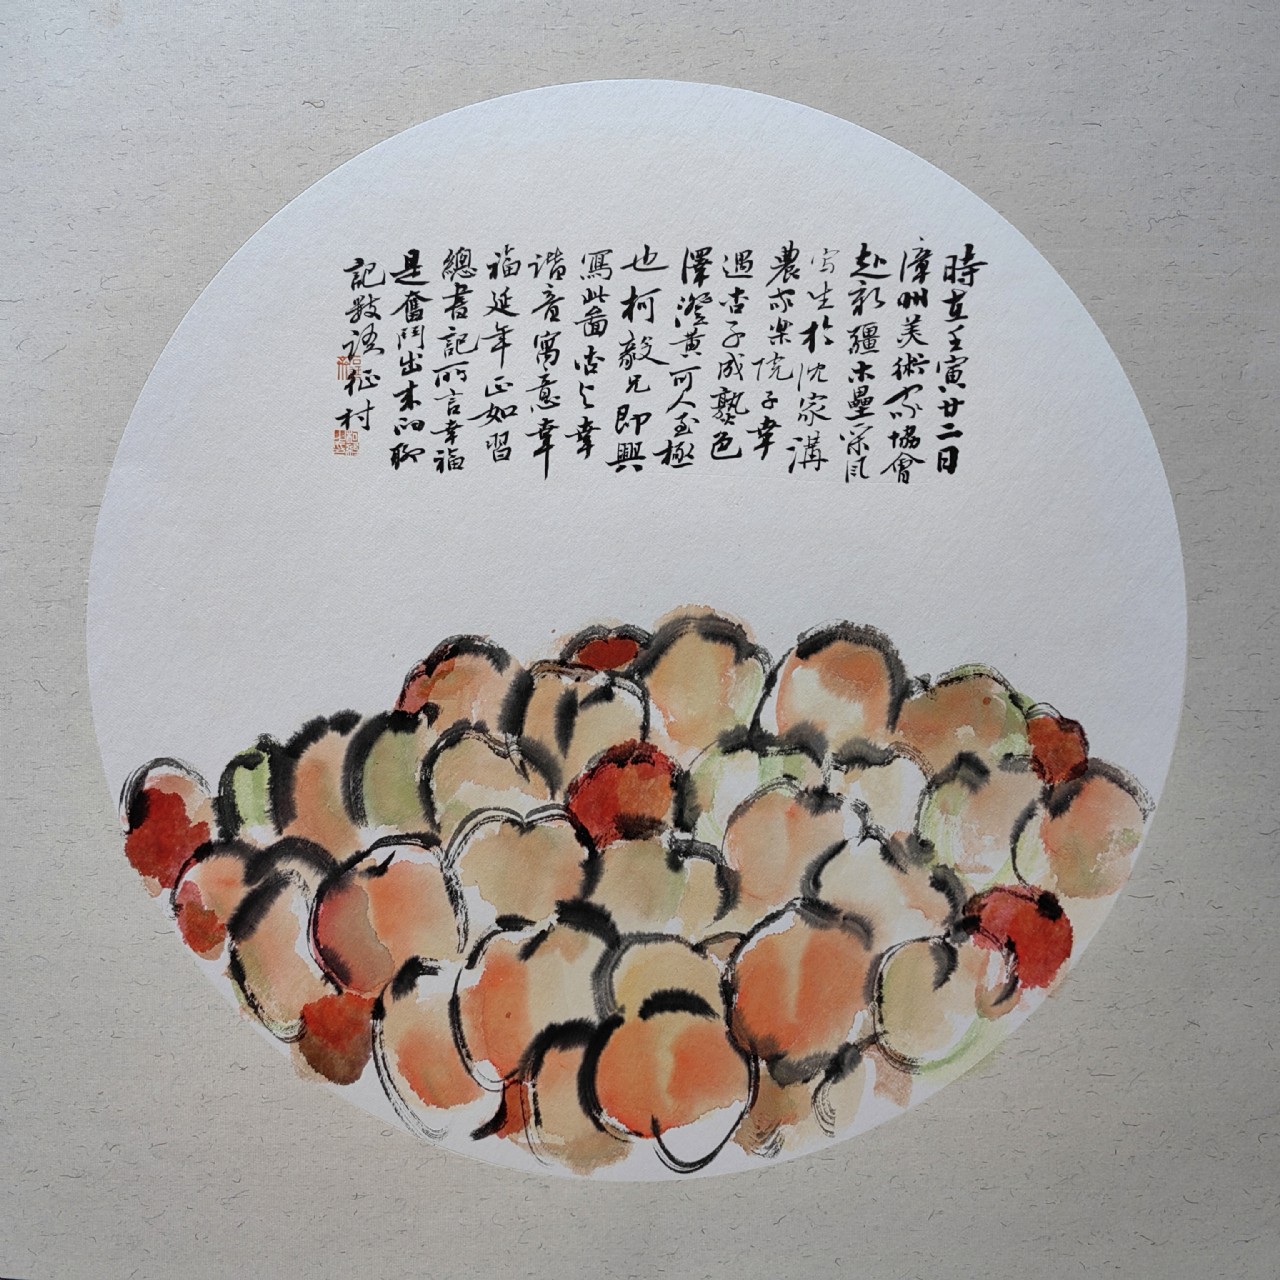 時在壬寅廿二日
漳州美術家協會
赴新疆木壘采风
写生於沈家溝
農家樂院子幸
遇杏子成熟色
澤澄黃可人至極
也柯毅兄即興
寫此圖杏与幸
谐音寓意幸
福延年正如習
總書記所言幸福
是奮鬥出来的聊
記數语征村